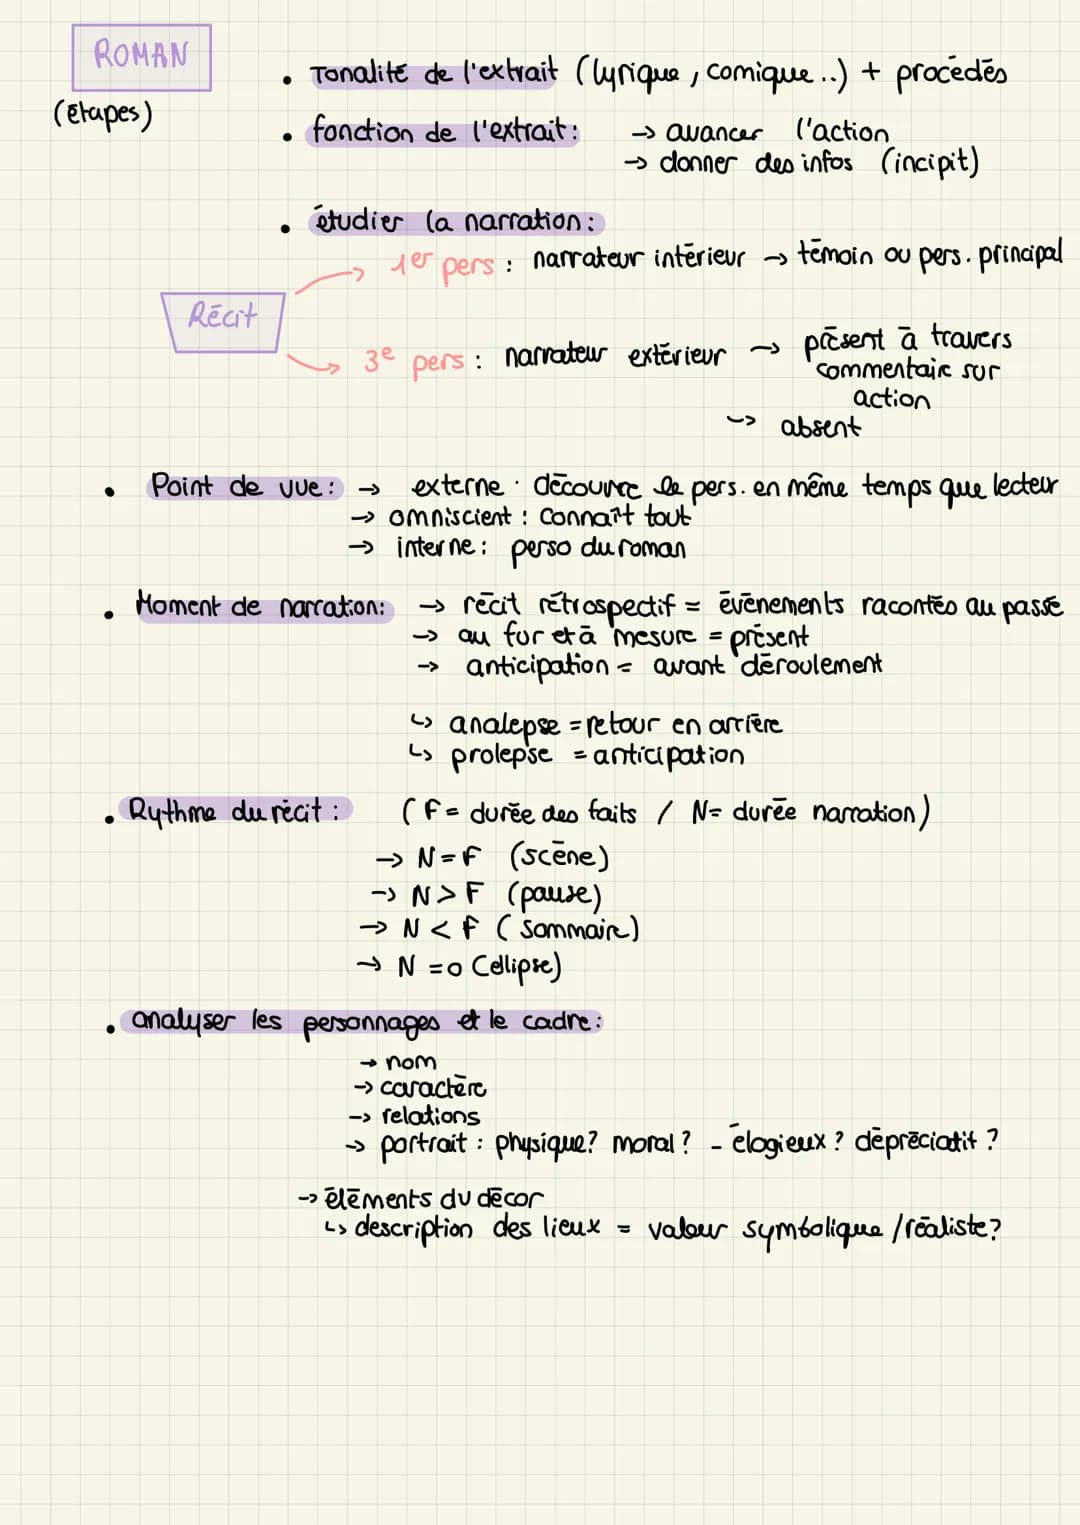 ROMAN
(étapes)
• Tonalité de l'extrait (lyrique, comique..) + procédés
• fonction de l'extrait: → avancer l'action
→ donner des infos (incipit)
• étudier la narration:
→ 1er pers : narrateur intérieur → témoin ou pers. principal
Récit
→ 3e pers : narrateur extérieur → présent à travers
commentaire sur
action
↳ absent
• Point de vue: → externe : découvre le pers. en même temps que lecteur
→ omniscient : connaît tout
→ interne: perso du roman
• Moment de narration: → récit rétrospectif = évènements racontés au passé
→ au fur et à mesure = présent
→ anticipation = avant déroulement
↳ analepse = retour en arrière
↳ prolepse = anticipation
• Rythme du récit : (F= durée des faits / N= durée narration)
→ N=F (scène)
→ N>F (pause)
→ N<F (sommaire)
→ N=0 (ellipse)
• analyser les personnages et le cadre:
→ nom
→ caractère
→ relations
→ portrait : physique? moral? - élogieux? dépréciatif?
→ éléments du décor
↳ description des lieux = valeur symbolique /réaliste?